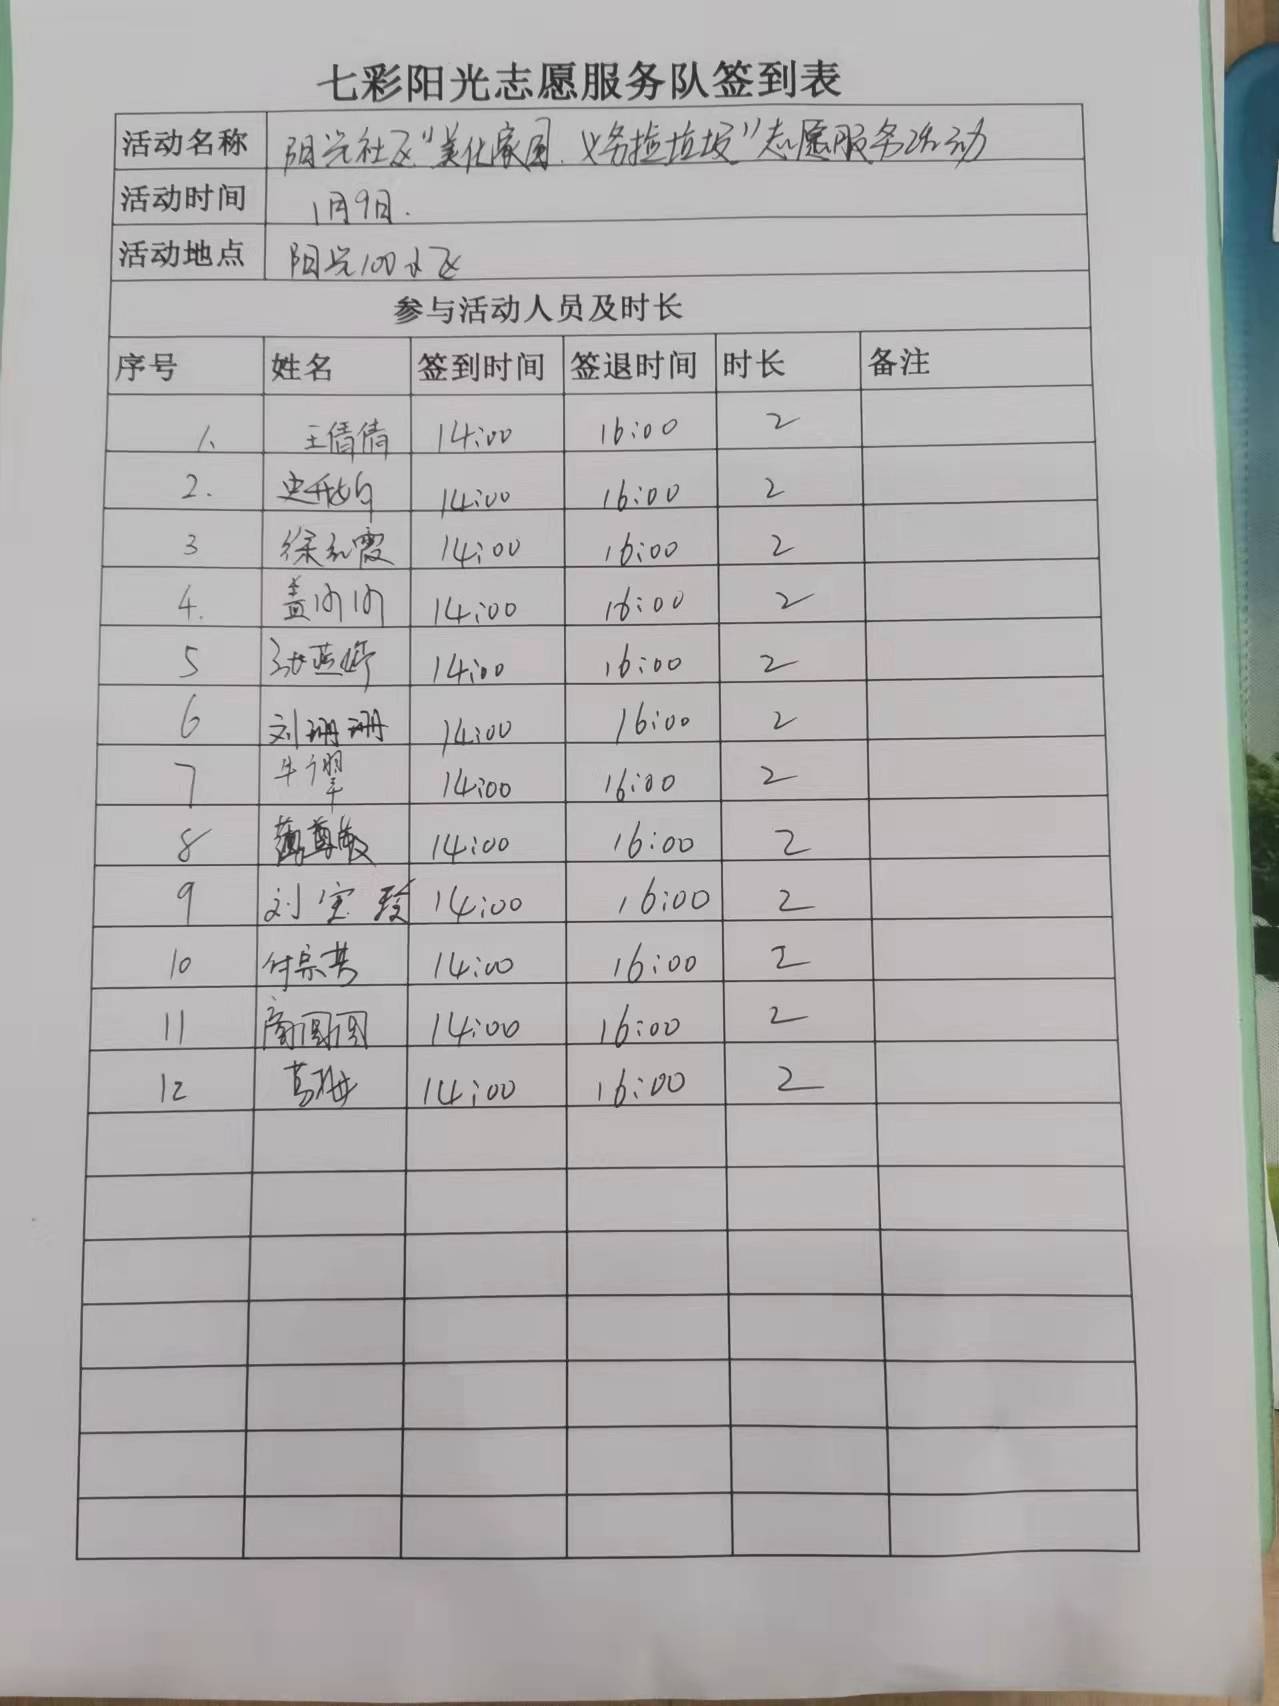 七彩阳光志愿服务队签到表
活动名称 阳光社区"美化家园、义务捡垃圾"志愿服务活动
活动时间 1月9日.
活动地点 阳光100小区
参与活动人员及时长
序号 姓名 签到时间 签退时间 时长 备注
1、 王倩倩 14:00 16:00 2
2. 14:00 16:00 2
3 徐红霞 14:00 16:00 2
4. 盖 14:00 16:00 2
5 14:00 16:00 2
6 刘珊珊 14:00 16:00 2
7 牛 14:00 16:00 2
8 14:00 16:00 2
9 刘宝玲 14:00 16:00 2
10 付宗英 14:00 16:00 2
11 商圆圆 14:00 16:00 2
12 葛梅 14:00 16:00 2